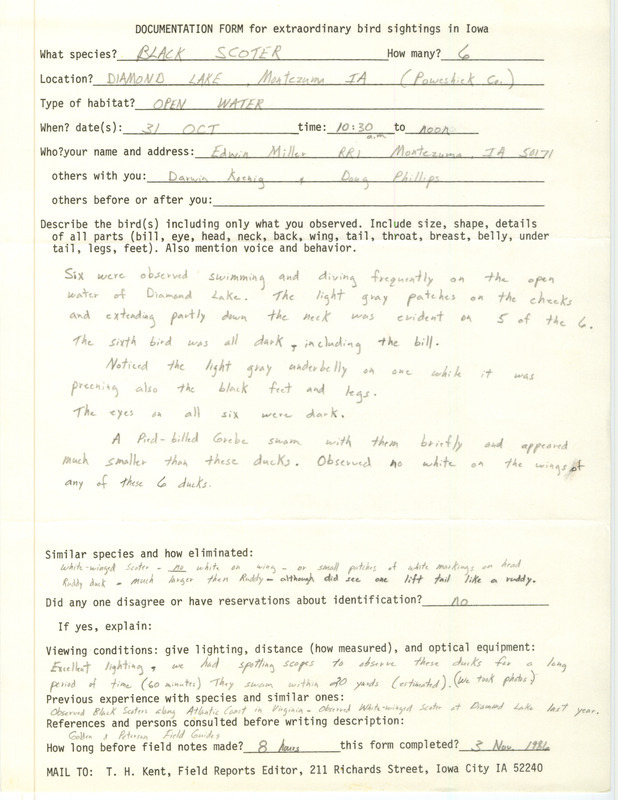 DOCUMENTATION FORM for extraordinary bird sightings in Iowa
What species? BLACK SCOTER How many? 6
Location? DIAMOND LAKE, Montezuma IA (Poweshiek Co.)
Type of habitat? OPEN WATER
When? date(s): 31 OCT time: 10:30 a.m. to noon
Who?your name and address: Edwin Miller RR1 Montezuma, IA 50171
others with you: Darwin Koenig & Doug Phillips
others before or after you:
Describe the bird(s) including only what you observed. Include size, shape, details
of all parts (bill, eye, head, neck, back, wing, tail, throat, breast, belly, under
tail, legs, feet). Also mention voice and behavior.
Six were observed swimming and diving frequently on the open
water of Diamond Lake. The light gray patches on the cheeks
and extending partly down the neck was evident on 5 of the 6.
The sixth bird was all dark, including the bill.
Noticed the light gray underbelly on one while it was
preening also the black feet and legs.
The eyes on all six were dark.
A Pied-billed Grebe swam with them briefly and appeared
much smaller than these ducks. Observed no white on the wings of
any of these 6 ducks.
Similar species and how eliminated:
White-winged Scoter - no white on wing - or small patches of white markings on head
Ruddy duck - much larger then Ruddy - although did see one lift tail like a ruddy.
Did any one disagree or have reservations about identification? no
If yes, explain:
Viewing conditions: give lighting, distance (how measured), and optical equipment:
Excellent lighting, we had spotting scopes to observe these ducks for a long
period of time (60 minutes) They swam within 20 yards (estimated). (We took photos)
Previous experience with species and similar ones:
Observed Black Scoters along Atlantic Coast in Virginia - Observed White-winged Scoter at Diamond Lake last year.
References and persons consulted before writing description:
Golden & Peterson Field Guides
How long before field notes made? 8 hours this form completed? 3 Nov. 1986
MAIL TO: T. H. Kent, Field Reports Editor, 211 Richards Street, Iowa City IA 52240